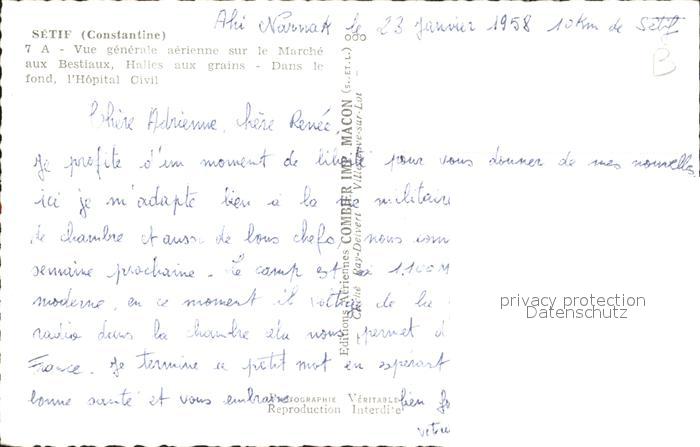 Aïn Narnak le 23 Janvier 1958 10 km de Sétif
SÉTIF (Constantine)
7 A - Vue générale aérienne sur le Marché
aux Bestiaux, Halles aux grains - Dans le
fond, l'Hôpital Civil
B
Chère Adrienne, chère Renée,
Je profite d'un moment de liberté pour vous donner de mes nouvelles,
ici je m'adapte bien à la vie militaire
de chambre et aussi de bons chefs, nous
semaine prochaine. Le camp est à 1.100 M
moderne, en ce moment il de la
radio dans la chambre cela nous permet d
France. Je termine ce petit mot en espérant
bonne santé et vous embrasse bien
votre
Editions Aériennes COMBIER IMP. MÂCON (S.-ET-L.)
Cliché Ray-Delvert - Villeneuve-sur-Lot
PHOTOGRAPHIE VÉRITABLE
Reproduction Interdite
privacy protection
Datenschutz